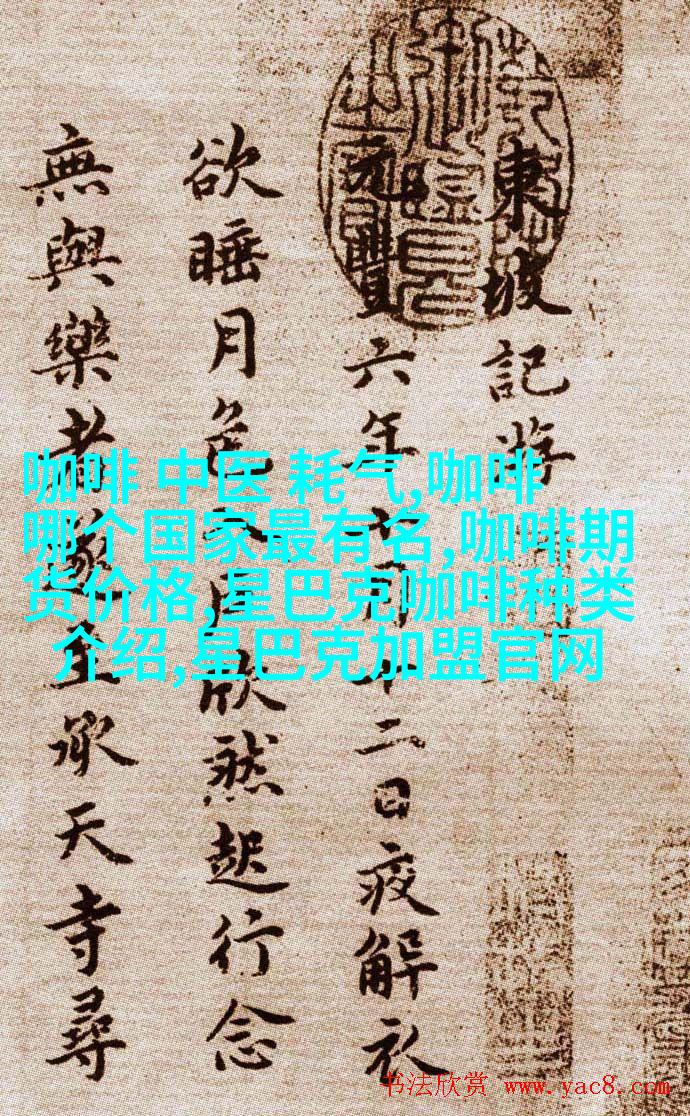 東坡記游
元豐六年十月十二日夜解衣
欲睡月色入戶欣然起行念
無與樂者遂至承天寺尋
咖啡 中医 耗气,咖啡
哪个国家最有名,咖啡期
货价格,星巴克咖啡种类
介绍,星巴克加盟官网
书法欣赏 www.yac8.com